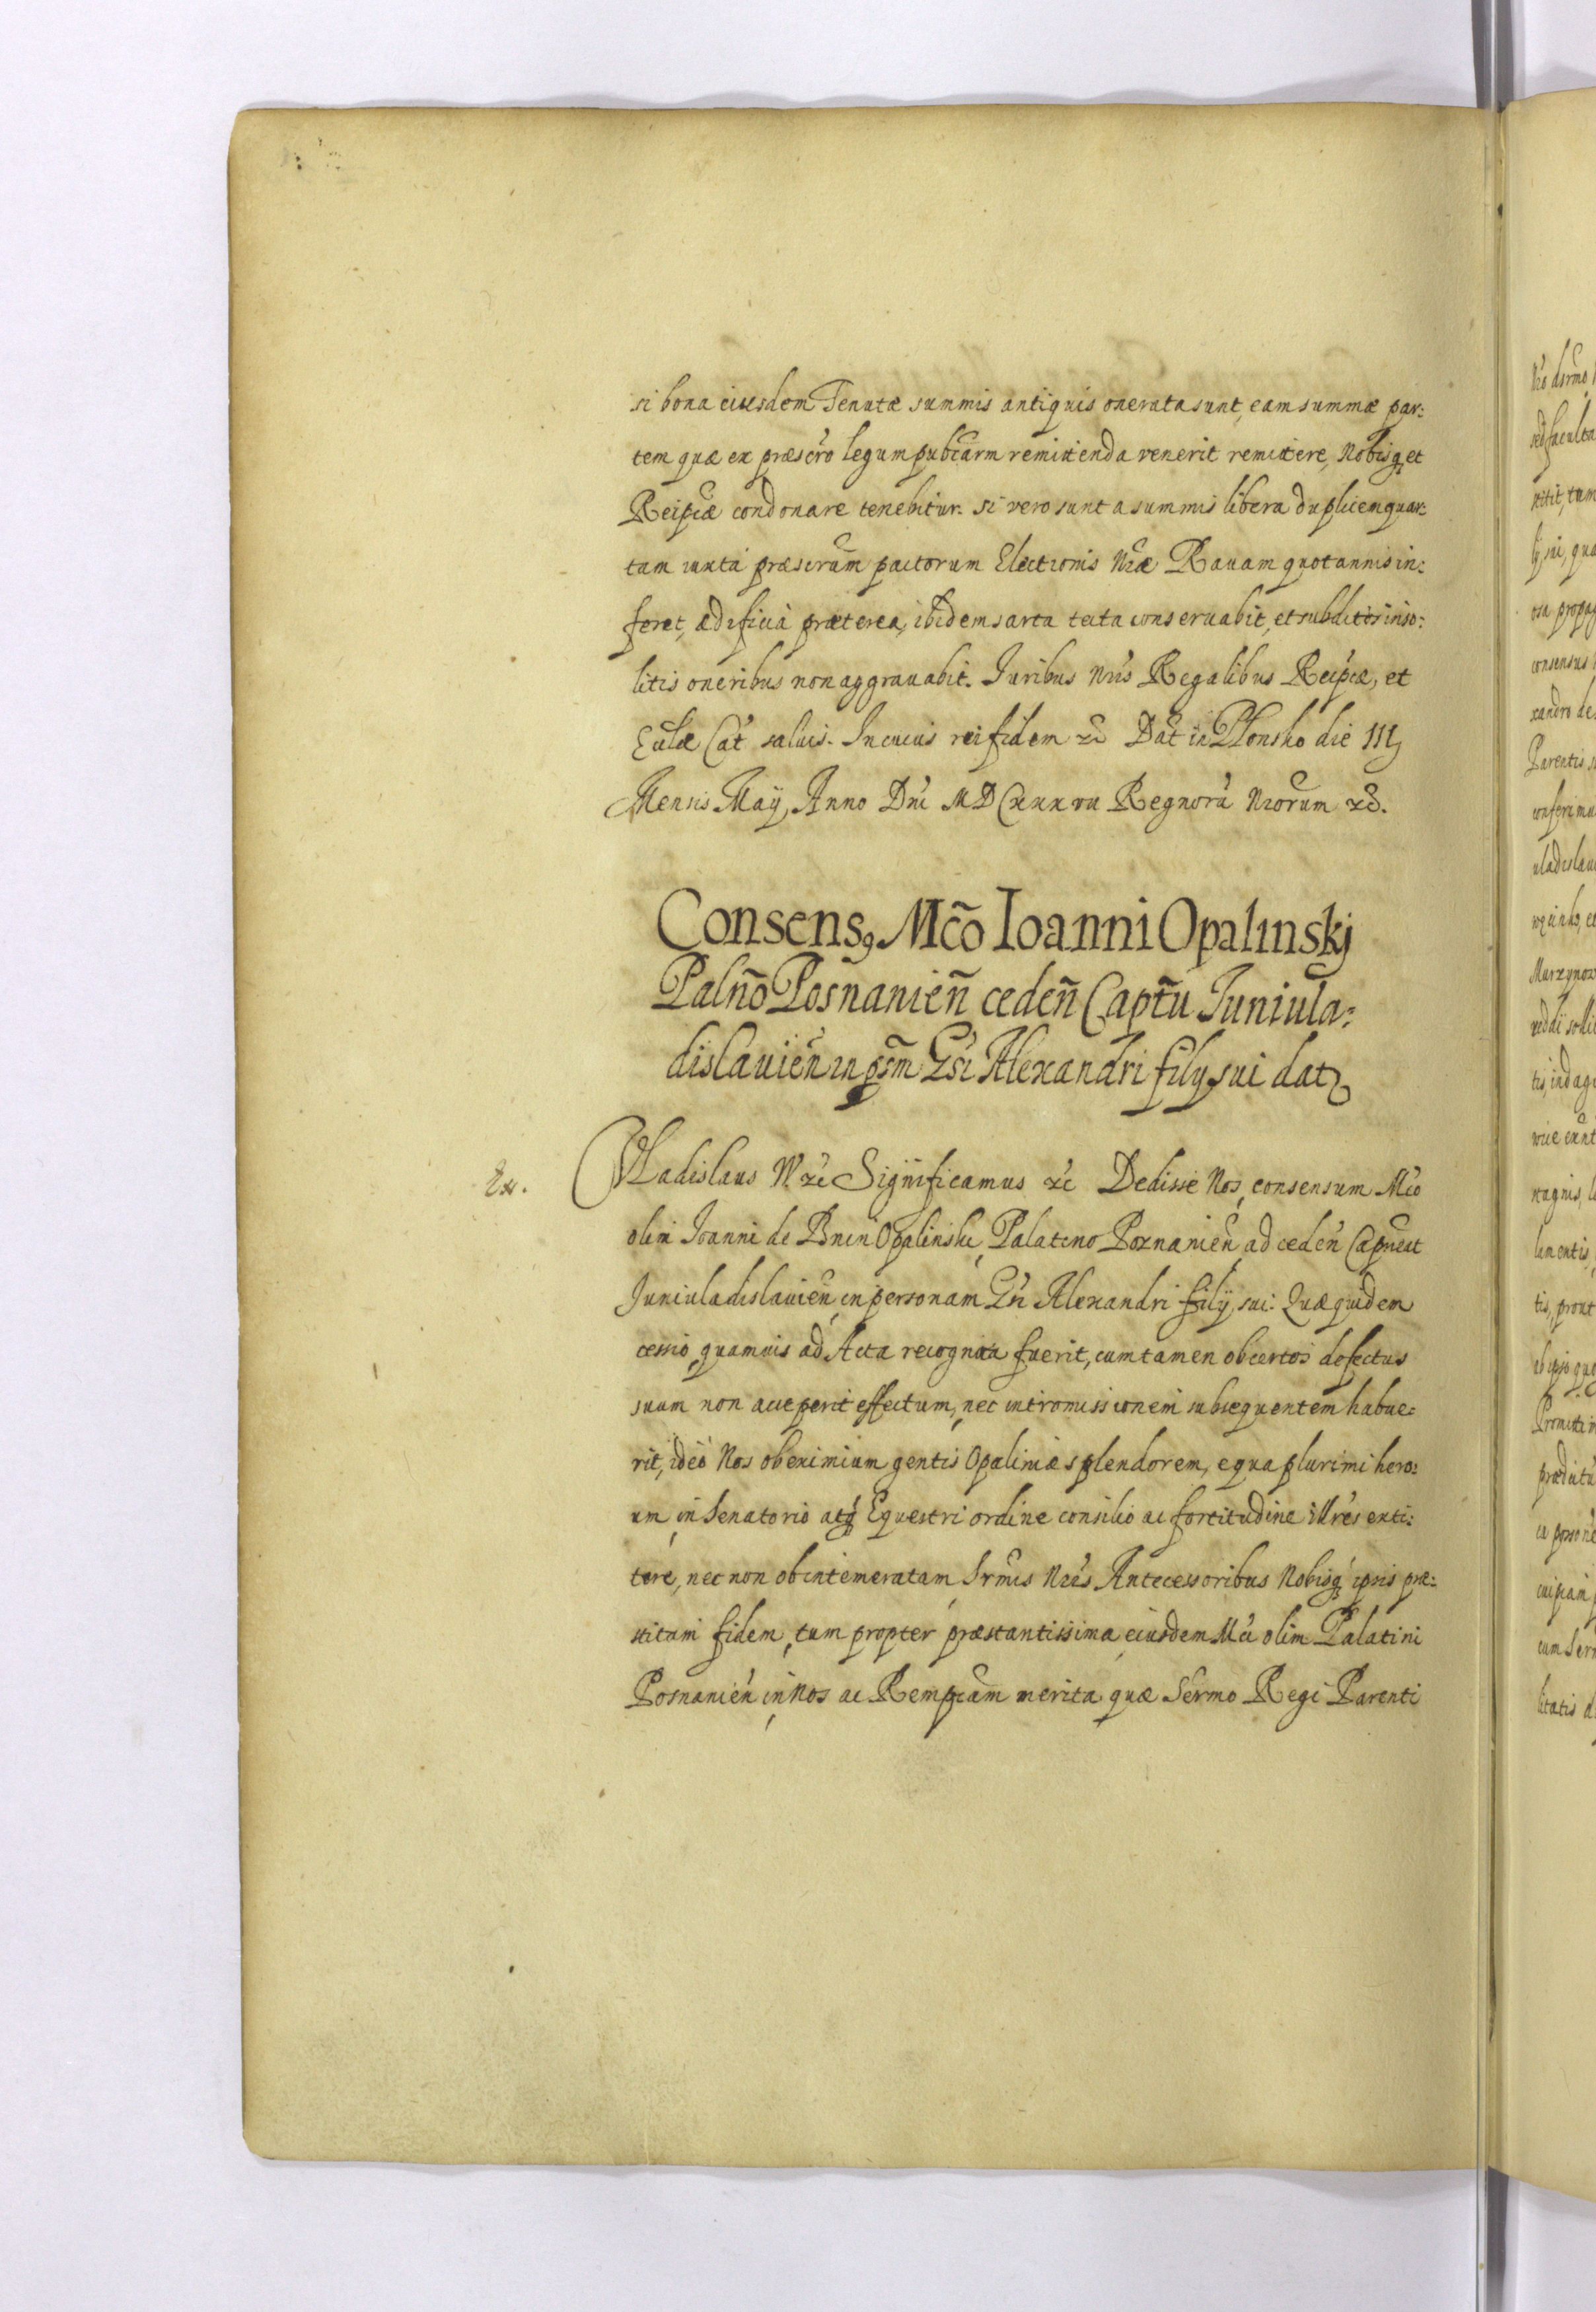 si bona eiusdem Tenutæ summis antiquis onerata sunt, eam summæ par:
tem quæ ex præscr̃o legum pubcarm remittenda venerit remittere, Nobisq̃ et
Reipcæ condonare tenebitur. Si vero sunt a summis libera duplicem quar:
tam iuxta præscrũm pactorum Electionis Nr̃æ Ravam quotannis in:
feret, ædificia præterea, ibidem sarta tecta conservabit, et subditos inso:
litis oneribus non aggravabit. Iuribus Nr̃is Regalibus Reipcæ, et
Eccl̃æ Cat̃ salvis. In cuius rei fidem &c̃ Dat̃ in Płonsko die III
Mensis Maÿ, Anno Dñi MDCXXXVII Regnorũ Nr̃orum &c̃.
Consensꝰ Mc̃o Ioanni Opalinskj
Palñо Posnanieñ cedeñ Capt̃u Iuniula:
dislavieñ in p̃sm Gs̃i Alexandri filÿ sui datꝰ
Ex.
Vladislaus IV. &c̃ Significamus &c̃ Dedisse Nos, consensum Mc̃o
olim Ioanni de Bnin Opalinski, Palatino Poznanieñ, ad cedeñ Capneat
Iuniuladislavieñ, in personam Gs̃i Alexandri filÿ sui: Quæ quidem
cessio, quamvis ad Acta recognita fuerit, cum tamen ob certos defectus
suum non acceperit effectum, nec intromissionem subsequentem habue:
rit, ideo Nos ob eximium gentis Opaliniæ splendorem, e qua plurimi hero:
um, in Senatorio atq̃ Equestri ordine consilio ac fortitudine illr̃es exti:
tere, nec non ob intemeratam, Srm̃is Nr̃is Antecessoribus Nobisq̃ ipsis præ:
stitam fidem, tum propter præstantissima, eiusdem Mc̃i olim Palatini
Posnanieñ, in Nos ac Rempcam merita, quæ Serm̃o Regi Parenti